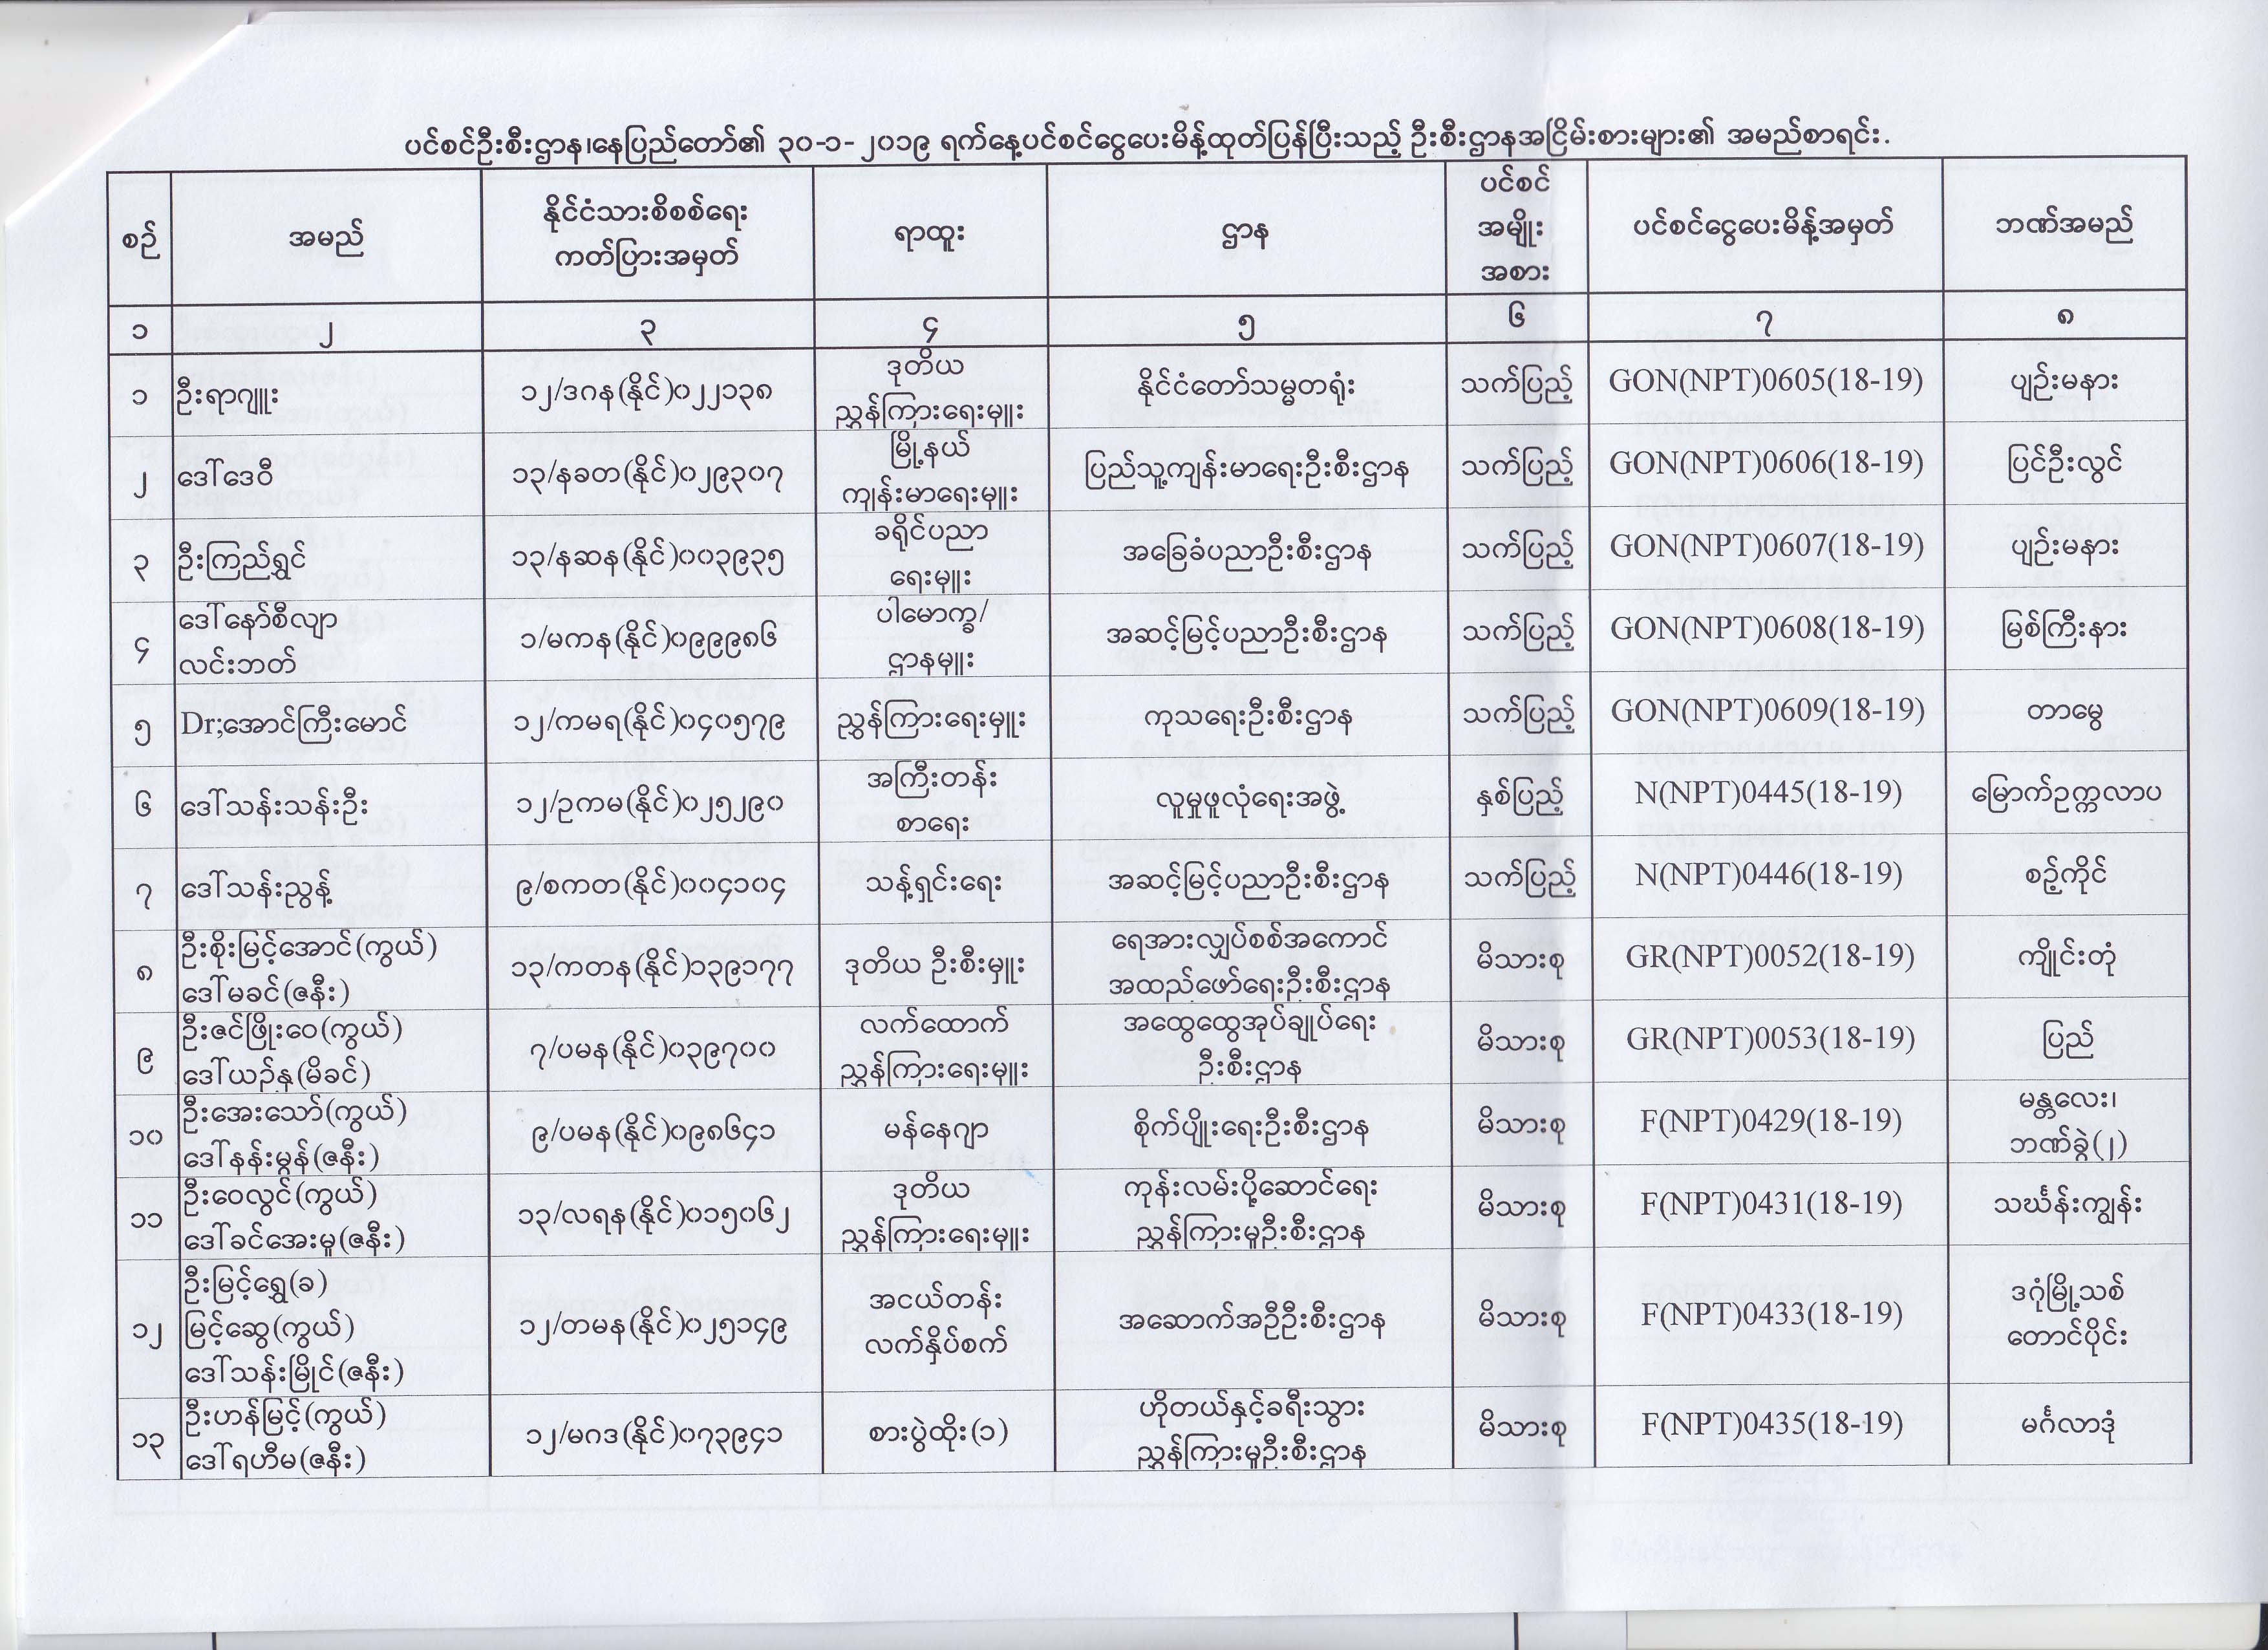 ပင်စင်ဦးစီးဌာန၊နေပြည်တော်၏ ၃၀-၁-၂၀၁၉ ရက်နေ့ပင်စင်ငွေပေးမိန့်ထုတ်ပြန်ပြီးသည့် ဦးစီးဌာနအငြိမ်းစားများ၏ အမည်စာရင်း.
စဉ် အမည် နိုင်ငံသားစိစစ်ရေး ကတ်ပြားအမှတ် ရာထူး ဌာန ပင်စင် အမျိုး အစား ပင်စင်ငွေပေးမိန့်အမှတ် ဘဏ်အမည်
၁ ၂ ၃ ၄ ၅ ၆ ၇ ၈
၁ ဦးရာဂျူး ၁၂/ဒဂန(နိုင်)၀၂၂၁၃၈ ဒုတိယ ညွှန်ကြားရေးမှူး နိုင်ငံတော်သမ္မတရုံး သက်ပြည့် GON(NPT)0605(18-19) ပျဉ်းမနား
၂ ဒေါ်ဒေဝီ ၁၃/နခတ(နိုင်)၀၂၉၃၀၇ မြို့နယ် ကျန်းမာရေးမှူး ပြည်သူ့ကျန်းမာရေးဦးစီးဌာန သက်ပြည့် GON(NPT)0606(18-19) ပြင်ဦးလွင်
၃ ဦးကြည်ရွှင် ၁၃/နဆန(နိုင်)၀၀၃၉၃၅ ခရိုင်ပညာ ရေးမှူး အခြေခံပညာဦးစီးဌာန သက်ပြည့် GON(NPT)0607(18-19) ပျဉ်းမနား
၄ ဒေါ်နော်စီလျာ လင်းဘတ် ၁/မကန(နိုင်)၀၉၉၉၈၆ ပါမောက္ခ/ ဌာနမှူး အဆင့်မြင့်ပညာဦးစီးဌာန သက်ပြည့် GON(NPT)0608(18-19) မြစ်ကြီးနား
၅ Dr;အောင်ကြီးမောင် ၁၂/ကမရ(နိုင်)၀၄၀၅၇၉ ညွှန်ကြားရေးမှူး ကုသရေးဦးစီးဌာန သက်ပြည့် GON(NPT)0609(18-19) တာမွေ
၆ ဒေါ်သန်းသန်းဦး ၁၂/ဥကမ(နိုင်)၀၂၅၂၉၀ အကြီးတန်း စာရေး လူမှုဖူလုံရေးအဖွဲ့ နှစ်ပြည့် N(NPT)0445(18-19) မြောက်ဥက္ကလာပ
၇ ဒေါ်သန်းညွန့် ၉/စကတ(နိုင်)၀၀၄၁၀၄ သန့်ရှင်းရေး အဆင့်မြင့်ပညာဦးစီးဌာန သက်ပြည့် N(NPT)0446(18-19) စဉ့်ကိုင်
၈ ဦးစိုးမြင့်အောင်(ကွယ်) ဒေါ်မခင်(ဇနီး) ၁၃/ကတန(နိုင်)၁၃၉၁၇၇ ဒုတိယ ဦးစီးမှူး ရေအားလျှပ်စစ်အကောင် အထည်ဖော်ရေးဦးစီးဌာန မိသားစု GR(NPT)0052(18-19) ကျိုင်းတုံ
၉ ဦးဇင်ဖြိုးဝေ(ကွယ်) ဒေါ်ယဉ်နု(မိခင်) ၇/ပမန(နိုင်)၀၃၉၇၀၀ လက်ထောက် ညွှန်ကြားရေးမှူး အထွေထွေအုပ်ချုပ်ရေး ဦးစီးဌာန မိသားစု GR(NPT)0053(18-19) ပြည်
၁၀ ဦးအေးသော်(ကွယ်) ဒေါ်နန်းမွန်(ဇနီး) ၉/ပမန(နိုင်)၀၉၈၆၄၁ မန်နေဂျာ စိုက်ပျိုးရေးဦးစီးဌာန မိသားစု F(NPT)0429(18-19) မန္တလေး၊ ဘဏ်ခွဲ(၂)
၁၁ ဦးဝေလွင်(ကွယ်) ဒေါ်ခင်အေးမူ(ဇနီး) ၁၃/လရန(နိုင်)၀၁၅၀၆၂ ဒုတိယ ညွှန်ကြားရေးမှူး ကုန်းလမ်းပို့ဆောင်ရေး ညွှန်ကြားမှုဦးစီးဌာန မိသားစု F(NPT)0431(18-19) သင်္ဃန်းကျွန်း
၁၂ ဦးမြင့်ရွှေ(ခ) မြင့်ဆွေ(ကွယ်) ဒေါ်သန်းမြိုင်(ဇနီး) ၁၂/တမန(နိုင်)၀၂၅၁၄၉ အငယ်တန်း လက်နှိပ်စက် အဆောက်အဦဦးစီးဌာန မိသားစု F(NPT)0433(18-19) ဒဂုံမြို့သစ် တောင်ပိုင်း
၁၃ ဦးဟန်မြင့်(ကွယ်) ဒေါ်ရဟီမ(ဇနီး) ၁၂/မဂဒ(နိုင်)၀၇၃၉၄၁ စားပွဲထိုး(၁) ဟိုတယ်နှင့်ခရီးသွား ညွှန်ကြားမှုဦးစီးဌာန မိသားစု F(NPT)0435(18-19) မင်္ဂလာဒုံ